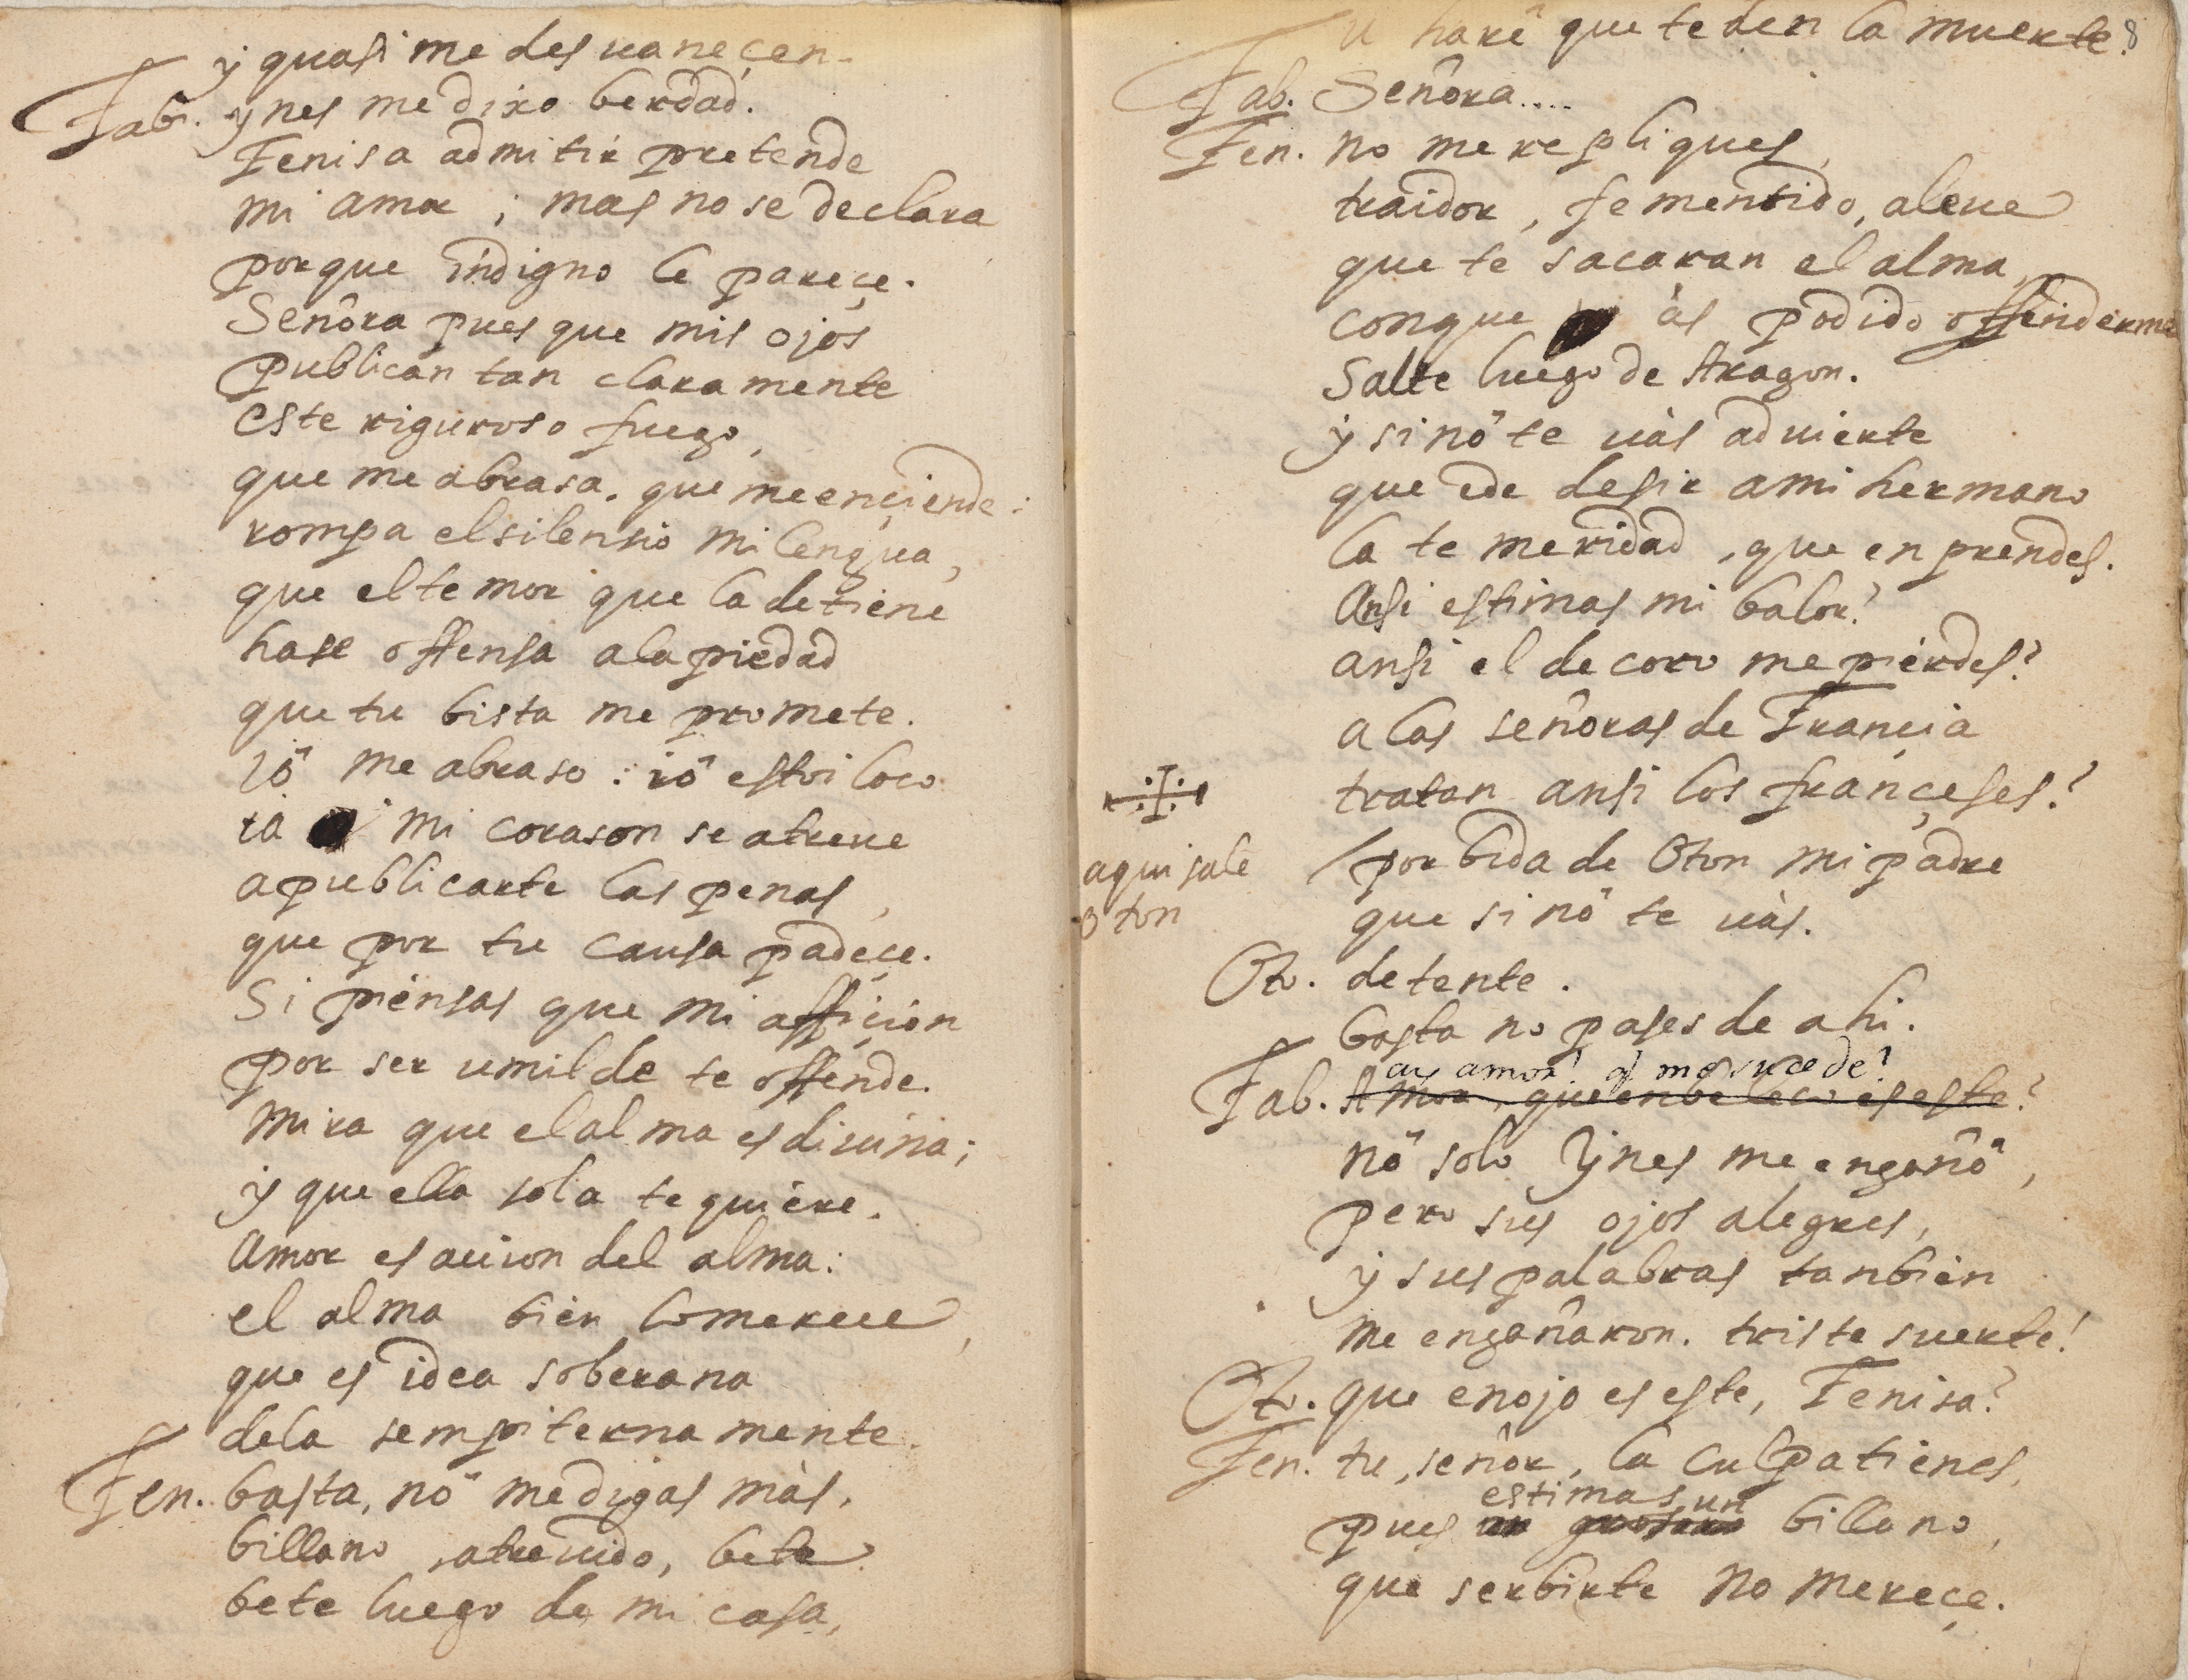 y quasi me desuaneçen.
Fab. ynes me dixo berdad.
Fenisa admitir pretende
mi amor ; mas no se declara
porque indigno le pareçe.
Señora pues que mis ojos
publican tan claramente
este riguroso fuego,
que me abrasa. que me ençiende:
rompa el silensio mi lengua,
que el temor que la detiene
hase offensa a la piedad
que tu bista me promete.
iö me abraso : iö estoi loco
ia mi corason se atreue
a publicarte las penas,
que por tu causa padeçe.
Si piensas que mi affiçion
por ser umilde te offende.
mira que el alma es diuina;
y que ella sola te quiere.
Amor es accion del alma:
el alma bien lo merece,
que es idea soberana
de la sempiterna mente.
Fen. basta, nö me digas màs,
billano, atreuido, bete
bete luego de mi casa,
u harè que te den la muerte. 8
Fab. Señora....
Fen. no me repliques,
traidor, fementido, aleue
que te sacaran el alma,
conque às podido offenderme
Salte luego de Aragon.
y si nö te uàs aduierte
que ede desir a mi hermano
la temeridad, que enprendes.
Ansi estimas mi balor?
ansi el decoro me pierdes?
a las señoras de Françia
tratan ansi los françeses?
aqui sale
Oton
por bida de Oton mi padre
que si nö te uàs.
Ot. detente.
basta no pases de ahi.
ay amor! q̃ me sucede?
Fab. Amor, que enbeleco es este?
nö solo Ynes me engañö,
pero sus ojos alegres,
y sus palabras tanbien
me engañaron. triste suerte!
Ot. que enojo es este, Fenisa?
Fen. tu, señor, la culpa tienes,
estimas un
pues un grosero billano,
que serbirte no mereçe.